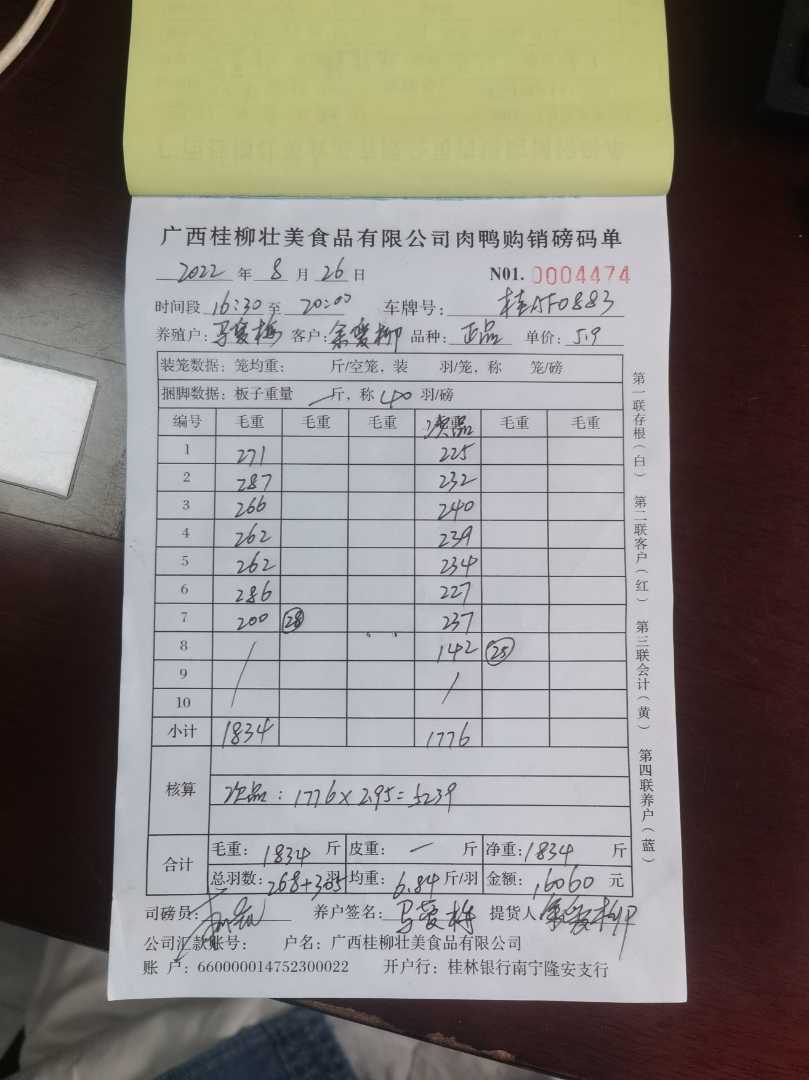 广西桂柳壮美食品有限公司肉鸭购销磅码单
2022 年 8 月 26 日 N01. 0004474
时间段 16:30 至 20:00 车牌号: 桂AF0883
养殖户: 马爱梅 客户: 余爱柳 品种: 正品 单价: 5.9
装笼数据: 笼均重: 斤/空笼, 装 羽/笼, 称 笼/磅
捆脚数据: 板子重量 — 斤, 称 40 羽/磅
编号 毛重 毛重 毛重 次品 毛重 毛重
1 271 225
2 287 232
3 266 240
4 262 239
5 262 234
6 286 227
7 200 28 237
8 / 142 25
9 /
10
小计 1834 1776
核算 次品: 1776×2.95=5239
合计 毛重: 1834 斤 皮重: — 斤 净重: 1834 斤
总羽数: 268+305 羽 均重: 6.84 斤/羽 金额: 16060 元
司磅员: 养户签名: 马爱梅 提货人 余爱柳
公司汇款账号: 户名: 广西桂柳壮美食品有限公司
账 户: 660000014752300022 开户行: 桂林银行南宁隆安支行
第一联存根(白) 第二联客户(红) 第三联会计(黄) 第四联养户(蓝)